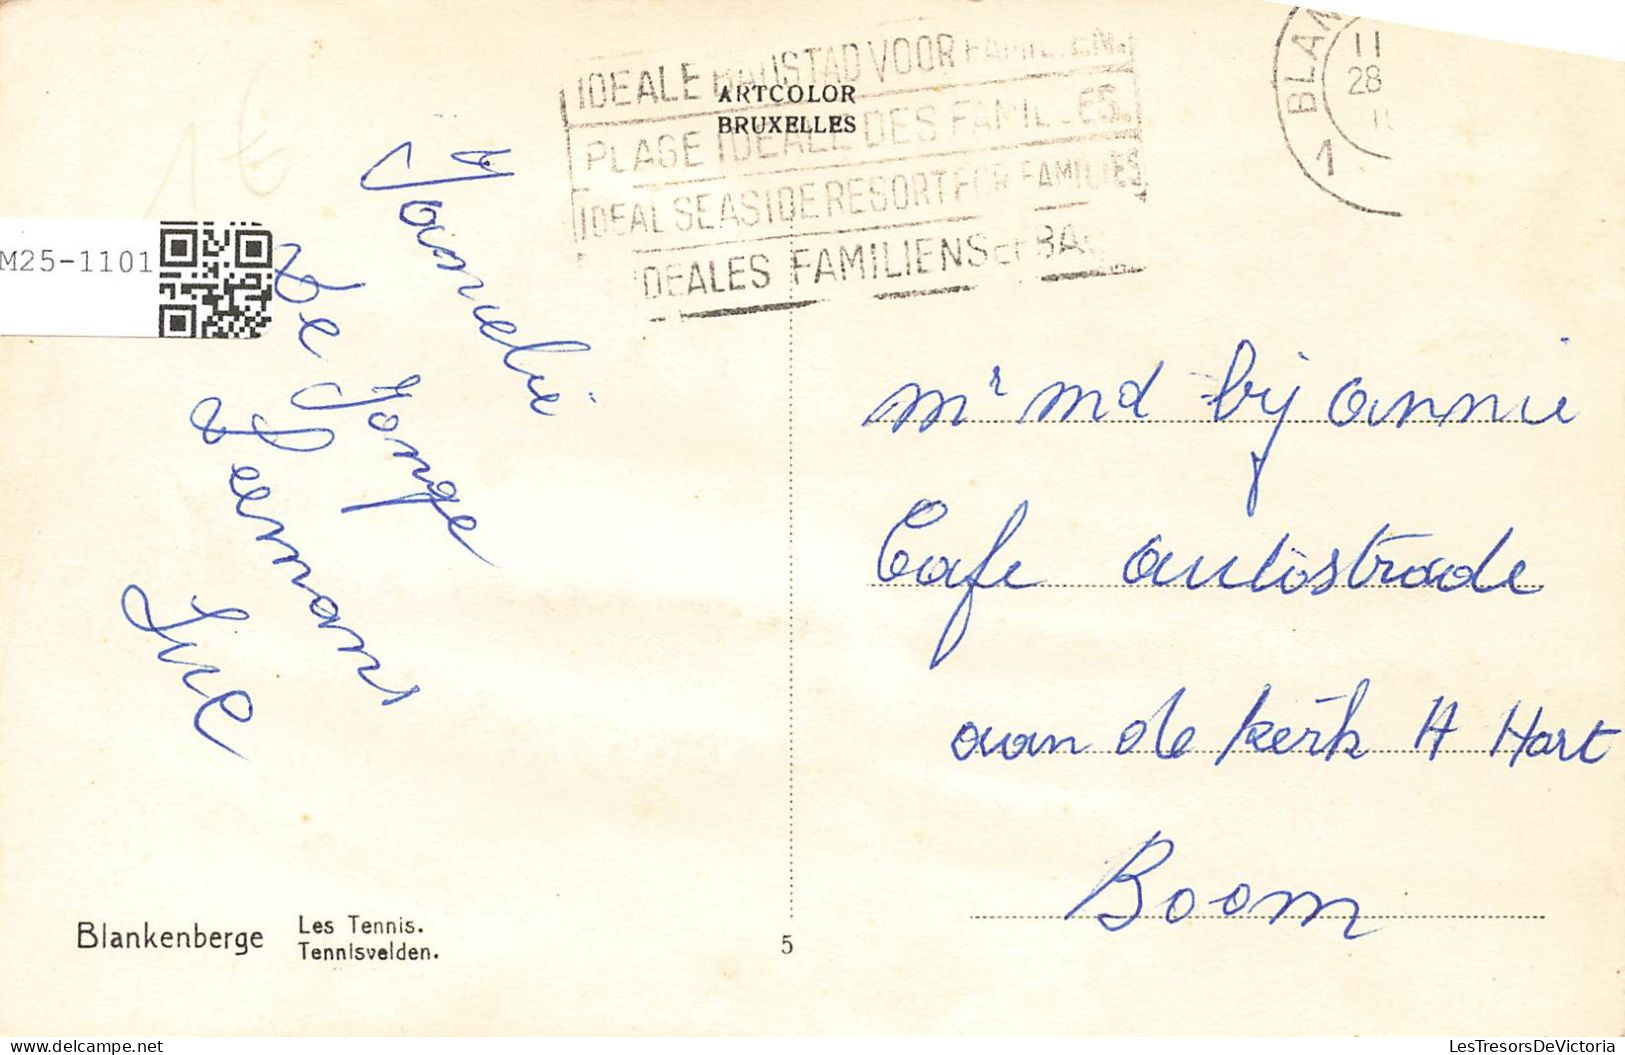 IDEALE BADSTAD VOOR FAMILIEN.
PLAGE IDEALE DES FAMILLES.
IDEAL SEASIDE RESORT FOR FAMILIES
IDEALES FAMILIENSEEBA
ARTCOLOR
BRUXELLES
1 BLAN
11
28
M25-1101
Familie
De Jonge
Leemans
mr md bij annie
Cafe autostrade
aan de kerk H Hart
Boom
Blankenberge
Les Tennis.
Tennisvelden.
5
LesTresorsDeVictoria
delcampe.net